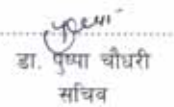 डा. पुष्पा चौधरी
सचिव